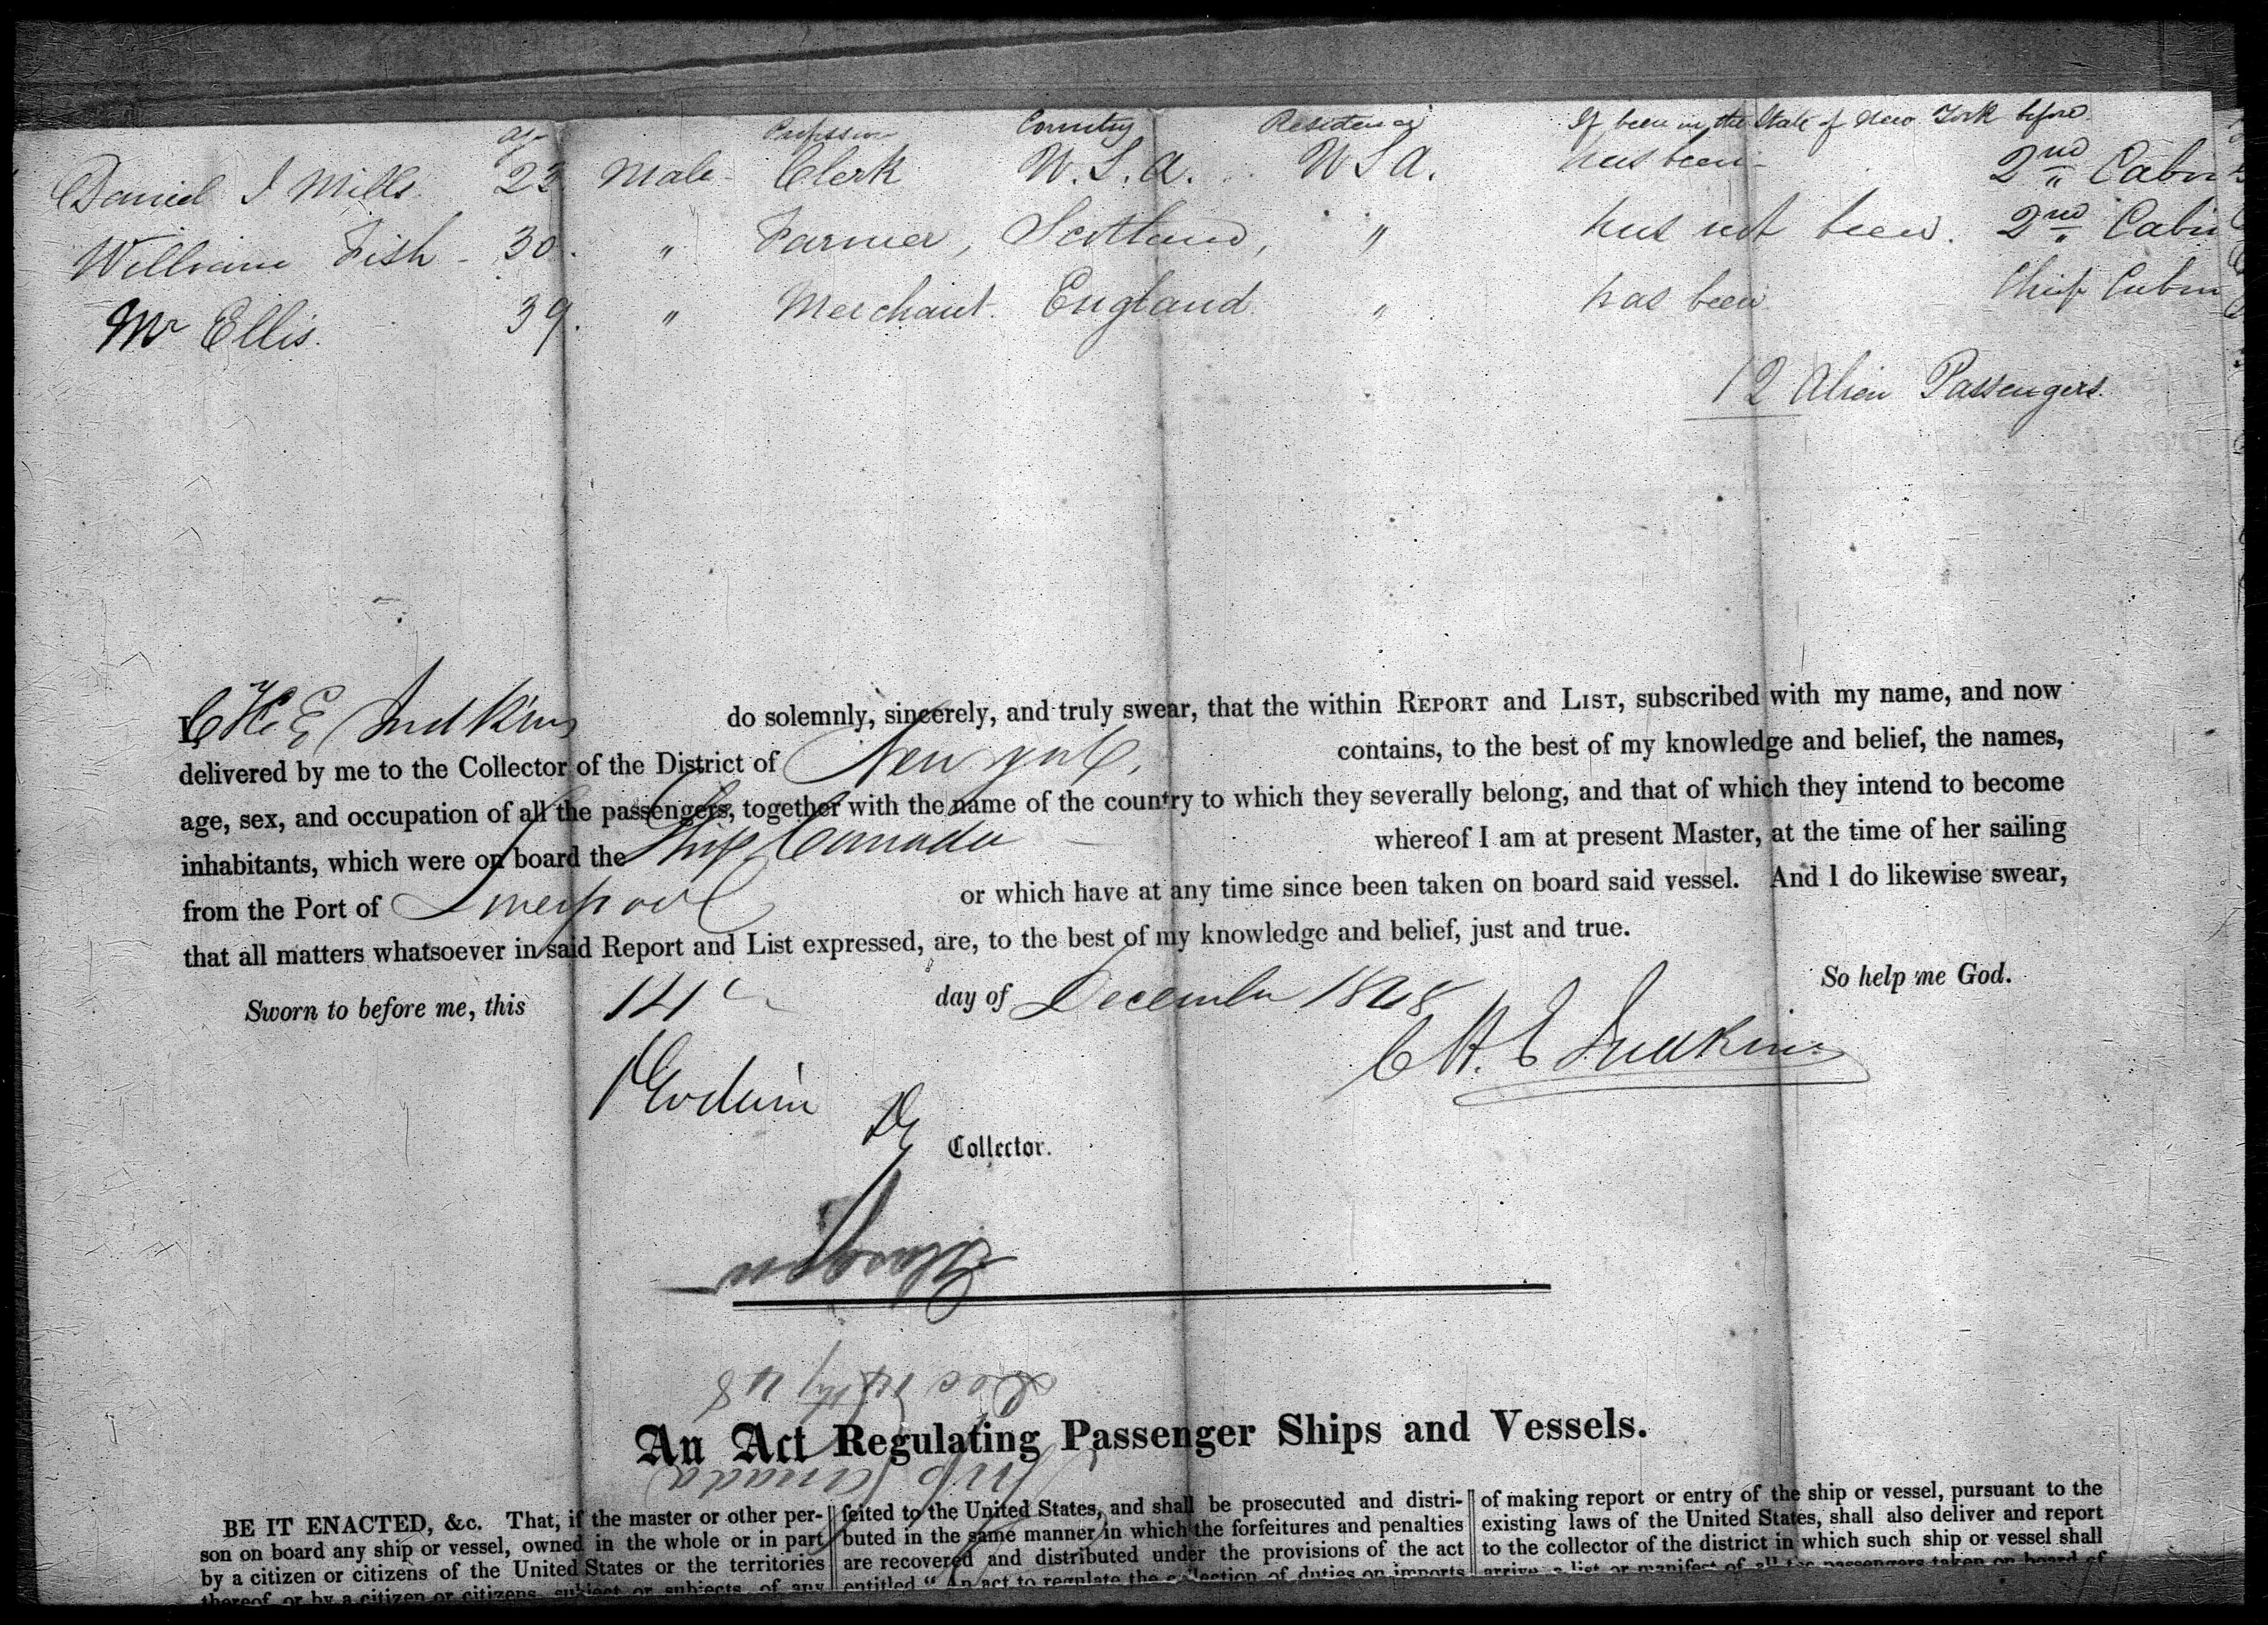 Age Profession Country Residence If been in the State of New York before
Daniel J Mills. 23 Male Clerk U.S.A. U S A. has been 2nd Cabin
William Fish - 30. " Farmer, Scotland, " has not been. 2nd Cabin
Mr Ellis. 39. " Merchant. England " has been Chief Cabin
12 Alien Passengers.
I, C H E Judkins do solemnly, sincerely, and truly swear, that the within REPORT and LIST, subscribed with my name, and now
delivered by me to the Collector of the District of New York, contains, to the best of my knowledge and belief, the names,
age, sex, and occupation of all the passengers, together with the name of the country to which they severally belong, and that of which they intend to become
inhabitants, which were on board the Ship Canada whereof I am at present Master, at the time of her sailing
from the Port of Liverpool or which have at any time since been taken on board said vessel. And I do likewise swear,
that all matters whatsoever in said Report and List expressed, are, to the best of my knowledge and belief, just and true.
So help me God.
Sworn to before me, this 14 day of December 1848
C H. E Judkins
Collector.
Dec 14th / 48
Ship Canada
An Act Regulating Passenger Ships and Vessels.
BE IT ENACTED, &c. That, if the master or other per-
son on board any ship or vessel, owned in the whole or in part
by a citizen or citizens of the United States or the territories
thereof, or by a citizen or citizens, subject or subjects, of any
feited to the United States, and shall be prosecuted and distri-
buted in the same manner in which the forfeitures and penalties
are recovered and distributed under the provisions of the act
entitled “ An act to regulate the collection of duties on imports
of making report or entry of the ship or vessel, pursuant to the
existing laws of the United States, shall also deliver and report
to the collector of the district in which such ship or vessel shall
arrive, a list or manifest of all the passengers taken on board of